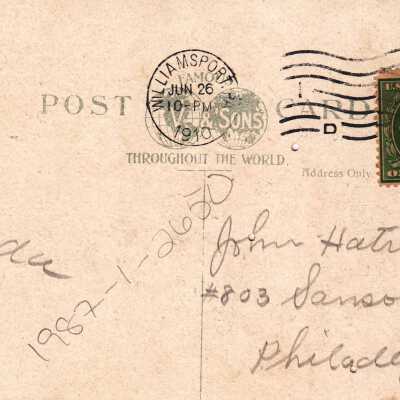 WILLIAMSPORT, PA.
JUN 26
10-PM
1910
D
FAMO
POST CARD
& SONS
THROUGHOUT THE WORLD.
Address Only
U.S.
John Hat
#803 Sanso
Philade
da
1987-1-2650